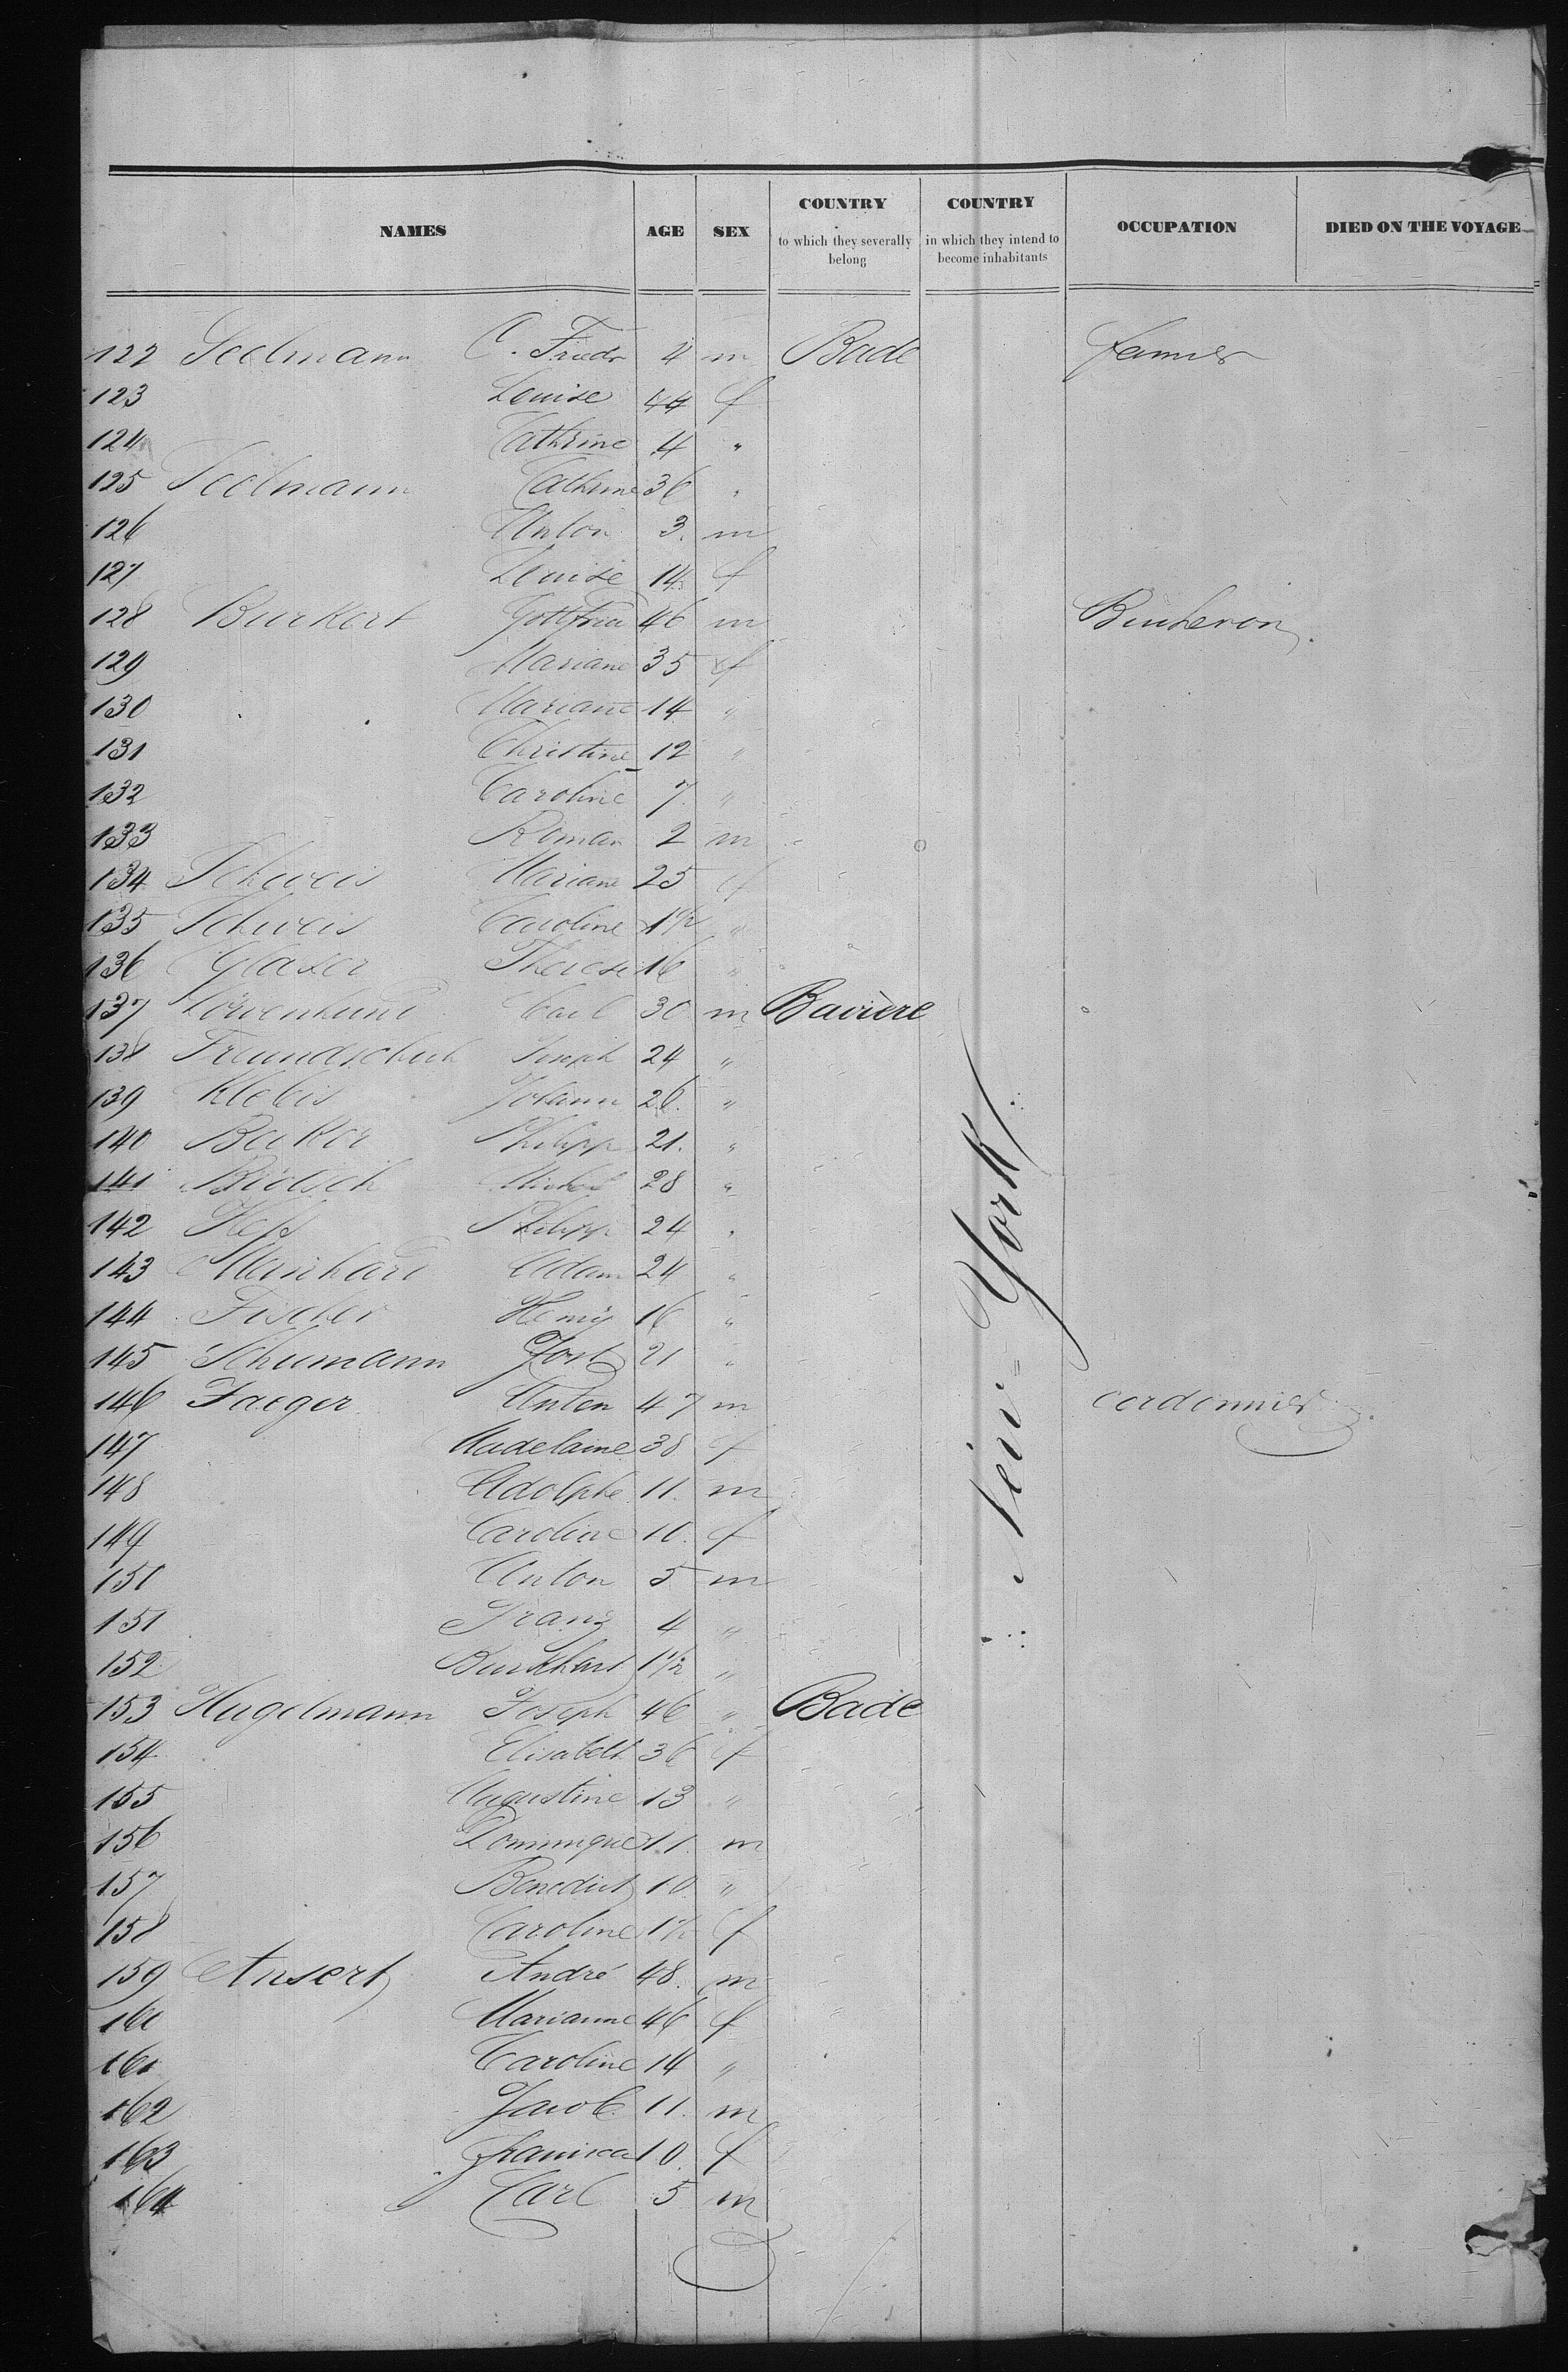 NAMES AGE SEX COUNTRY to which they severally belong COUNTRY in which they intend to become inhabitants OCCUPATION DIED ON THE VOYAGE
122 Seelmann C. Friedr 4 m Bade
123 Louise 44 f
124 Cathrine 4 "
125 Seelmann Cathrine 36 "
126 Anton 3. m
127 Louise 14 f
128 Burkert Gottfried 46 m Bucheron
129 Mariane 35 f
130 Mariane 14 "
131 Christine 12 "
132 Caroline 7. "
133 Roman 2 m
134 Schweis Mariane 25 f
135 Schweis Caroline 1 1/2 "
136 Glaser Therese 16 "
137 Carl 30 m Bavière
138 Freundschuh Joseph 24 "
139 Johann 26. "
140 Philipp 21. "
141 Michel 28 "
142 Philipp 24 "
143 Meinhard Adam 24 "
144 Fischer Henry 16 "
145 Schumann Jost 21 "
146 Jaeger Anton 47 m cordonnier
147 Madelaine 38 f
148 Adolphe 11. m
149 Caroline 10. f
150 Anton 5 m
151 Franz 4 "
152 Burkhart 1 1/2 "
153 Hugelmann Joseph 46 " Bade
154 Elisabeth 36 f
155 Augustine 13 "
156 Dominique 11. m
157 Benedict 10. "
158 Caroline 1 1/2 f
159 Ansert André 48. m
160 Marianne 46 f
161 Caroline 14 "
162 Jacob 11. m
163 10. f
164 Carl 5 m
New-York